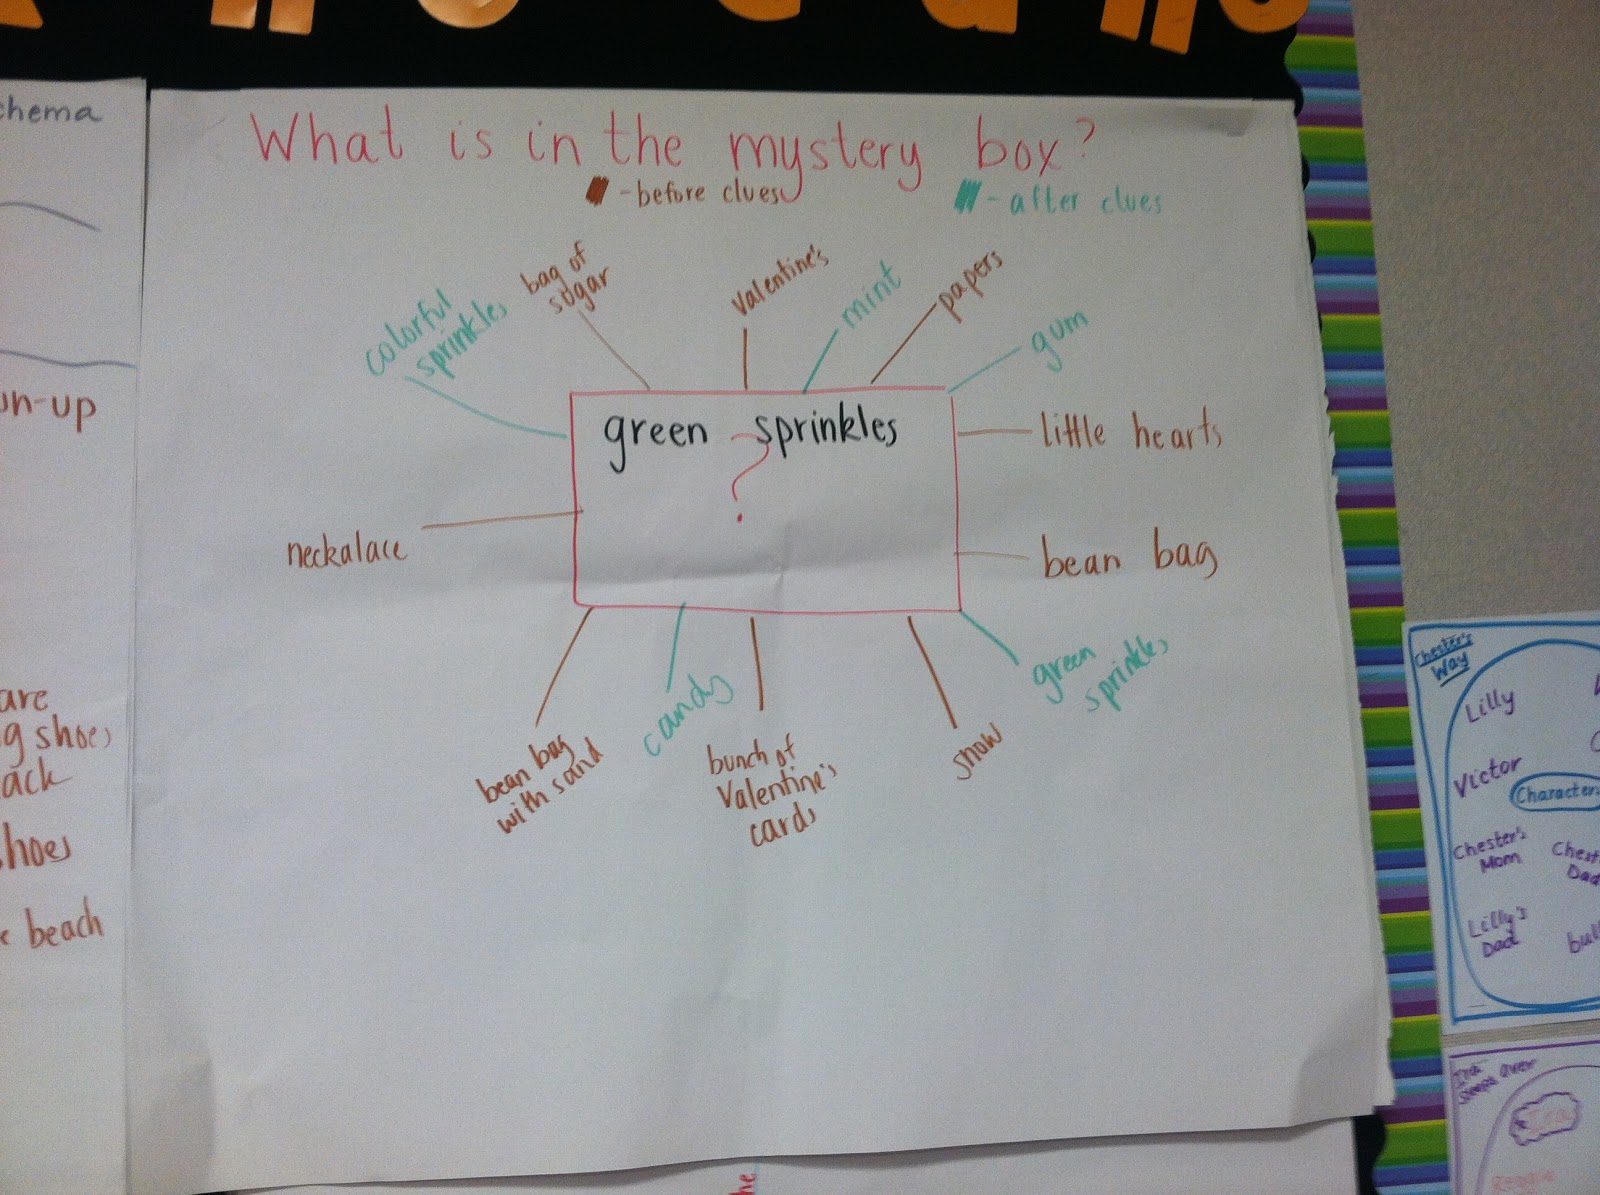 What is in the mystery box?
-before clues
-after clues
colorful
sprinkles
bag of
sugar
valentine's
mint
papers
gum
green sprinkles
?
little hearts
neckalace
bean bag
green
sprinkles
bean bag
with sand
candy
bunch of
Valentine's
cards
snow
chema
un-up
are
g shoes
ack
hoes
beach
Chester's
Way
Lilly
Victor
Character
Chester's
Mom
Chest
Dad
Lilly's
Dad
bull
Ira
Sleeps Over
Ira
Reggie
he